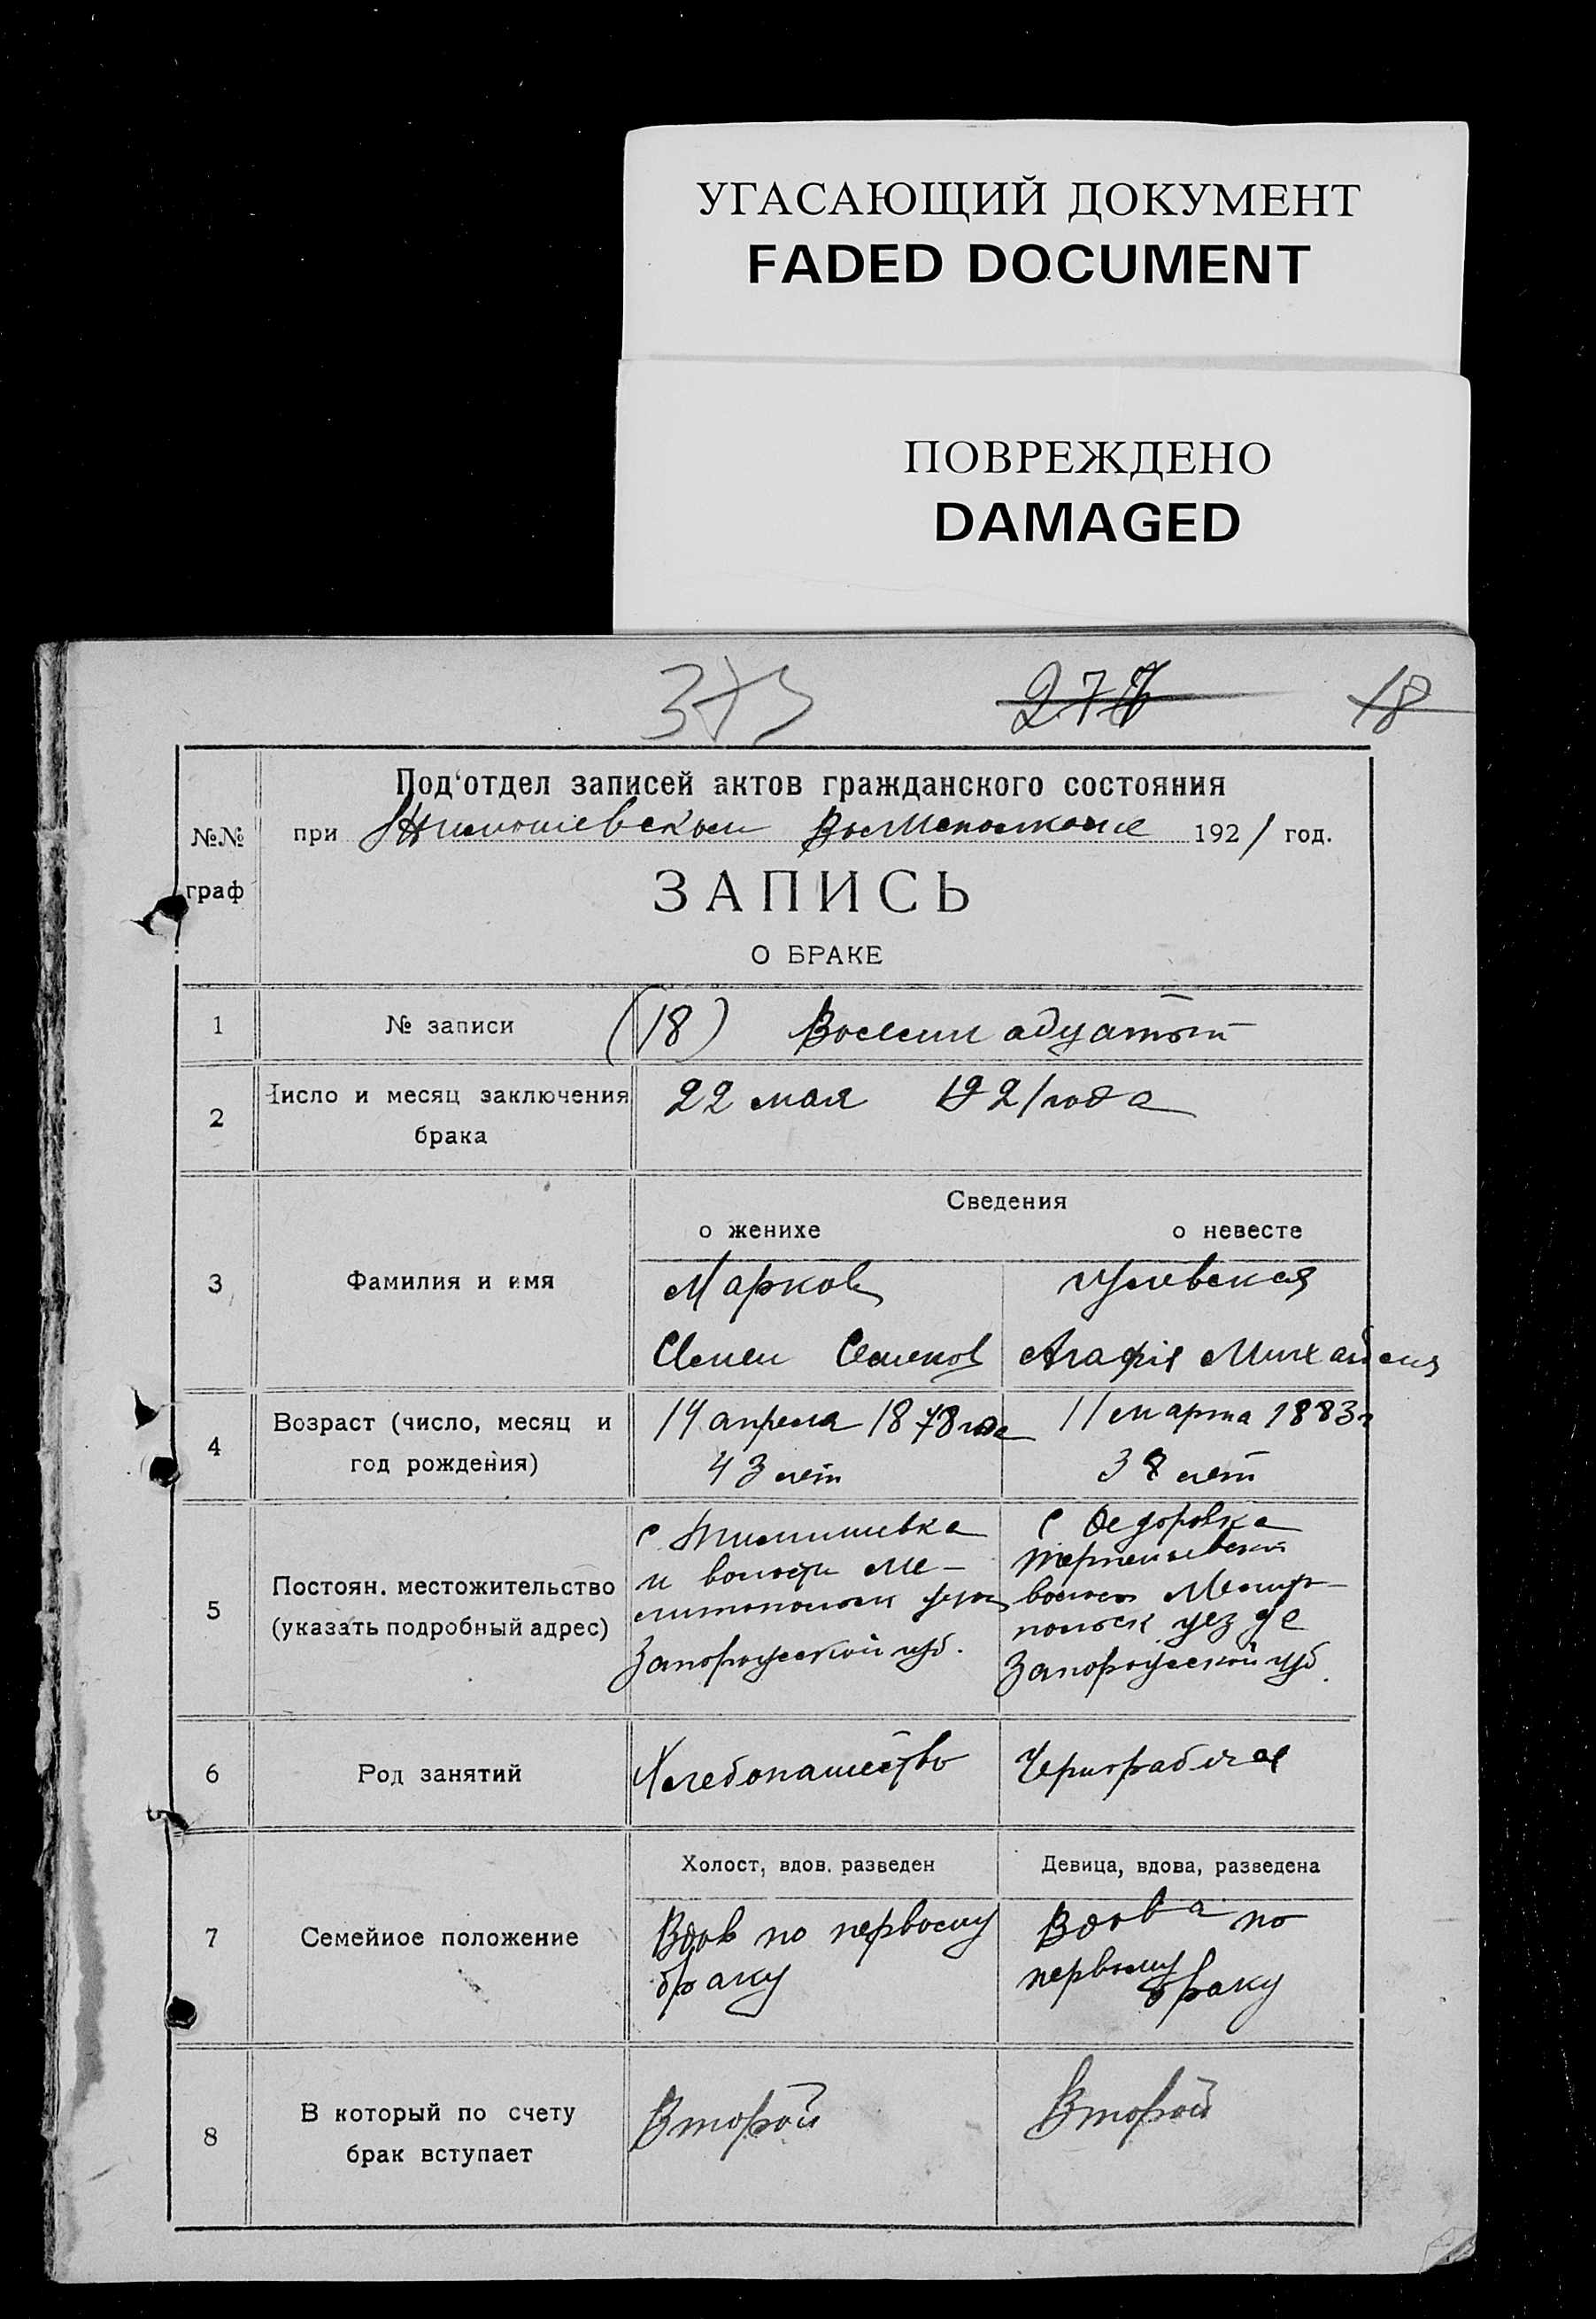 УГАСАЮЩИЙ ДОКУМЕНТ
FADED DOCUMENT
ПОВРЕЖДЕНО
DAMAGED
373 277 18
Под'отдел записей актов гражданского состояния
№№ при 1921 год.
граф
ЗАПИСЬ
О БРАКЕ
1 № записи (18) Восемнадцатый
2 Число и месяц заключения брака 22 мая 1921 года
Сведения
о женихе о невесте
3 Фамилия и имя Марков
Семен Семенов Агафия
4 Возраст (число, месяц и год рождения) 14 апреля 1878 года 11 марта 1883 г
43 лет 38 лет
5 Постоян. местожительство (указать подробный адрес)
с. Тимошевка
и волости Ме-
литопольск уезд
Запорожской губ.
с Федоровка
волост Мелито-
польск уезда
Запорожской губ.
6 Род занятий Хлебопашество Чернорабочая
7 Семейное положение
Холост, вдов. разведен Девица, вдова, разведена
Вдов по первому
браку
Вдова по
первому
браку
8 В который по счету брак вступает Второй Второй